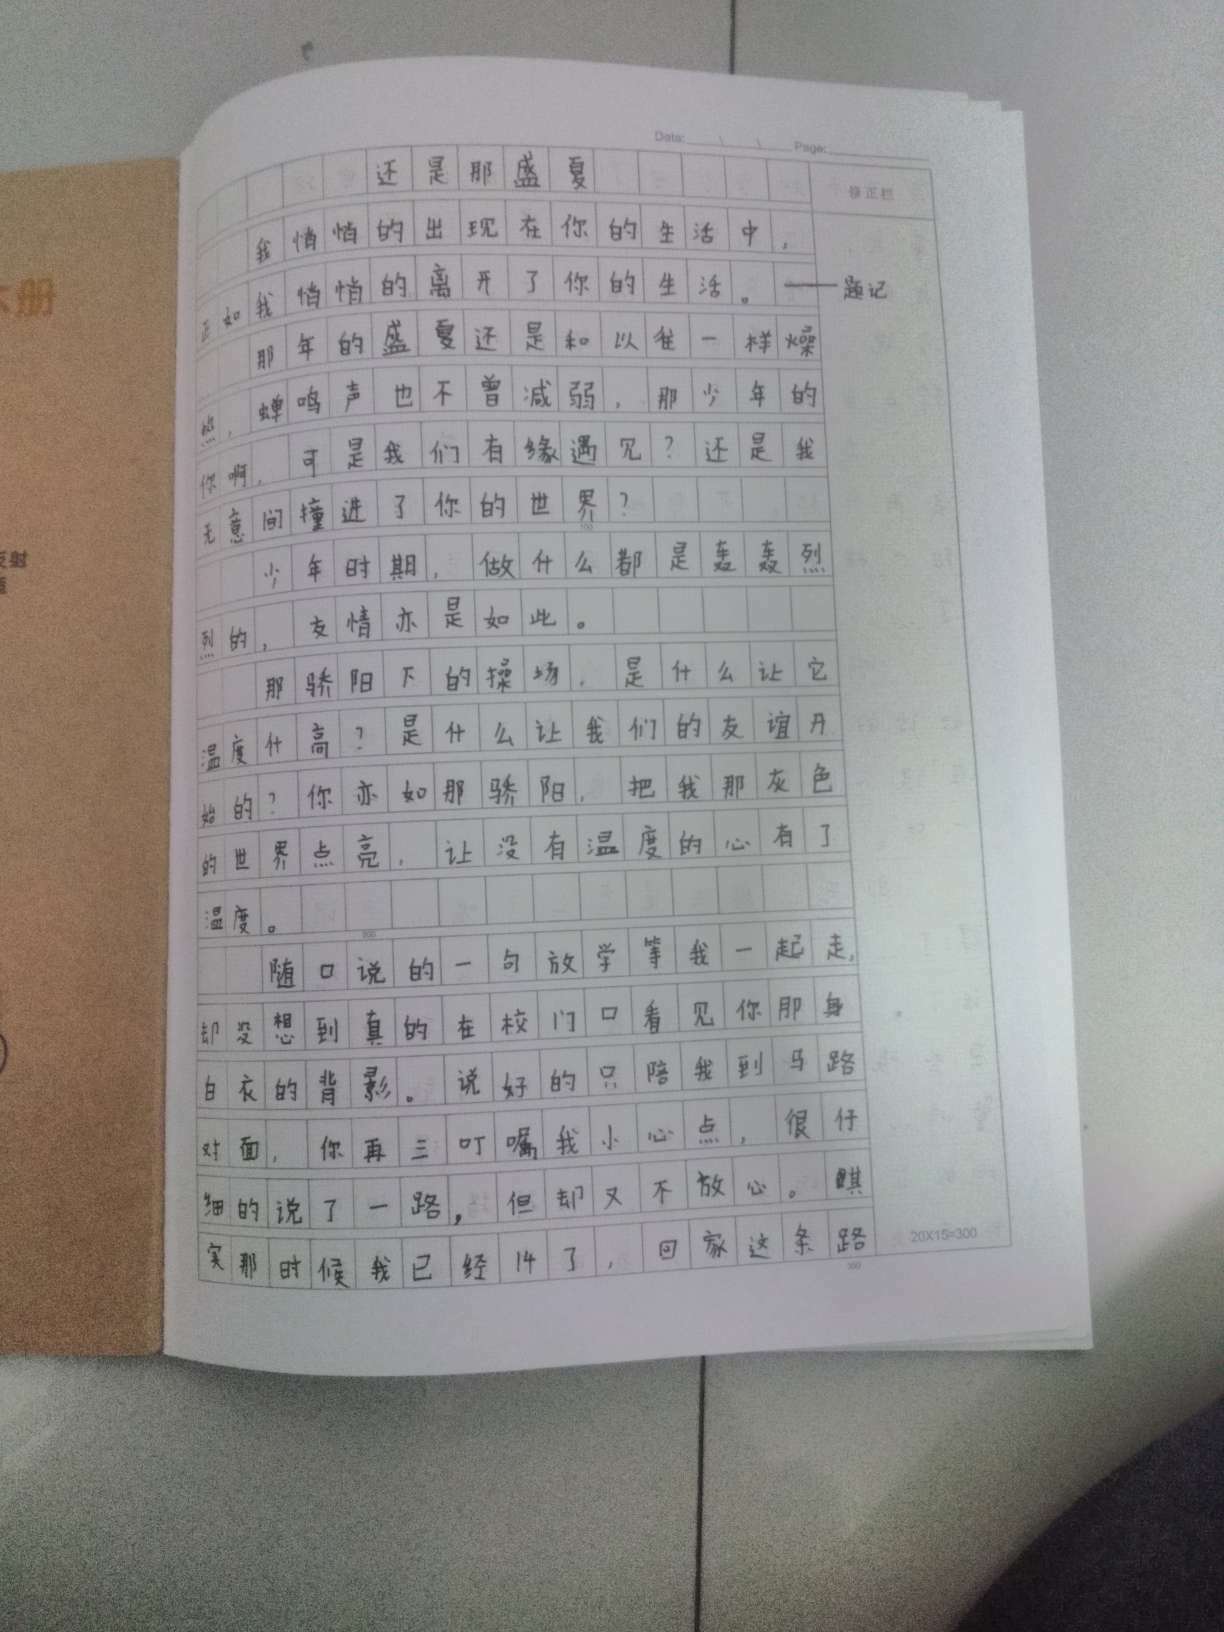 Date: \ \ Page:
修正栏
还是那盛夏
我悄悄的出现在你的生活中，
正如我悄悄的离开了你的生活。——题记
那年的盛夏还是和以往一样燥
热，蝉鸣声也不曾减弱，那少年的
你啊，可是我们有缘遇见？还是我
无意间撞进了你的世界？
100
少年时期，做什么都是轰轰烈
烈的，友情亦是如此。
那骄阳下的操场，是什么让它
温度什高？是什么让我们的友谊开
始的？你亦如那骄阳，把我那灰色
的世界点亮，让没有温度的心有了
温度。
200
随口说的一句放学等我一起走，
却没想到真的在校门口看见你那身
白衣的背影。说好的只陪我到马路
对面，你再三叮嘱我小心点，很仔
细的说了一路，但却又不放心。
实那时候我已经14了，回家这条路
20X15=300
300
册
射